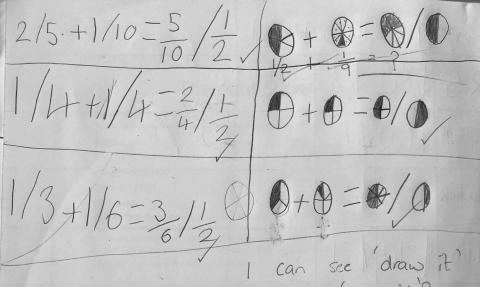 2/5 + 1/10 = 5/10 / 1/2 ✓
+ = /
1/2 + 1/9 = ?
1/4 + 1/4 = 2/4 / 1/2 ✓
+ = / ✓
1/3 + 1/6 = 3/6 / 1/2 ✓
+ = / ✓
I can see 'draw it'